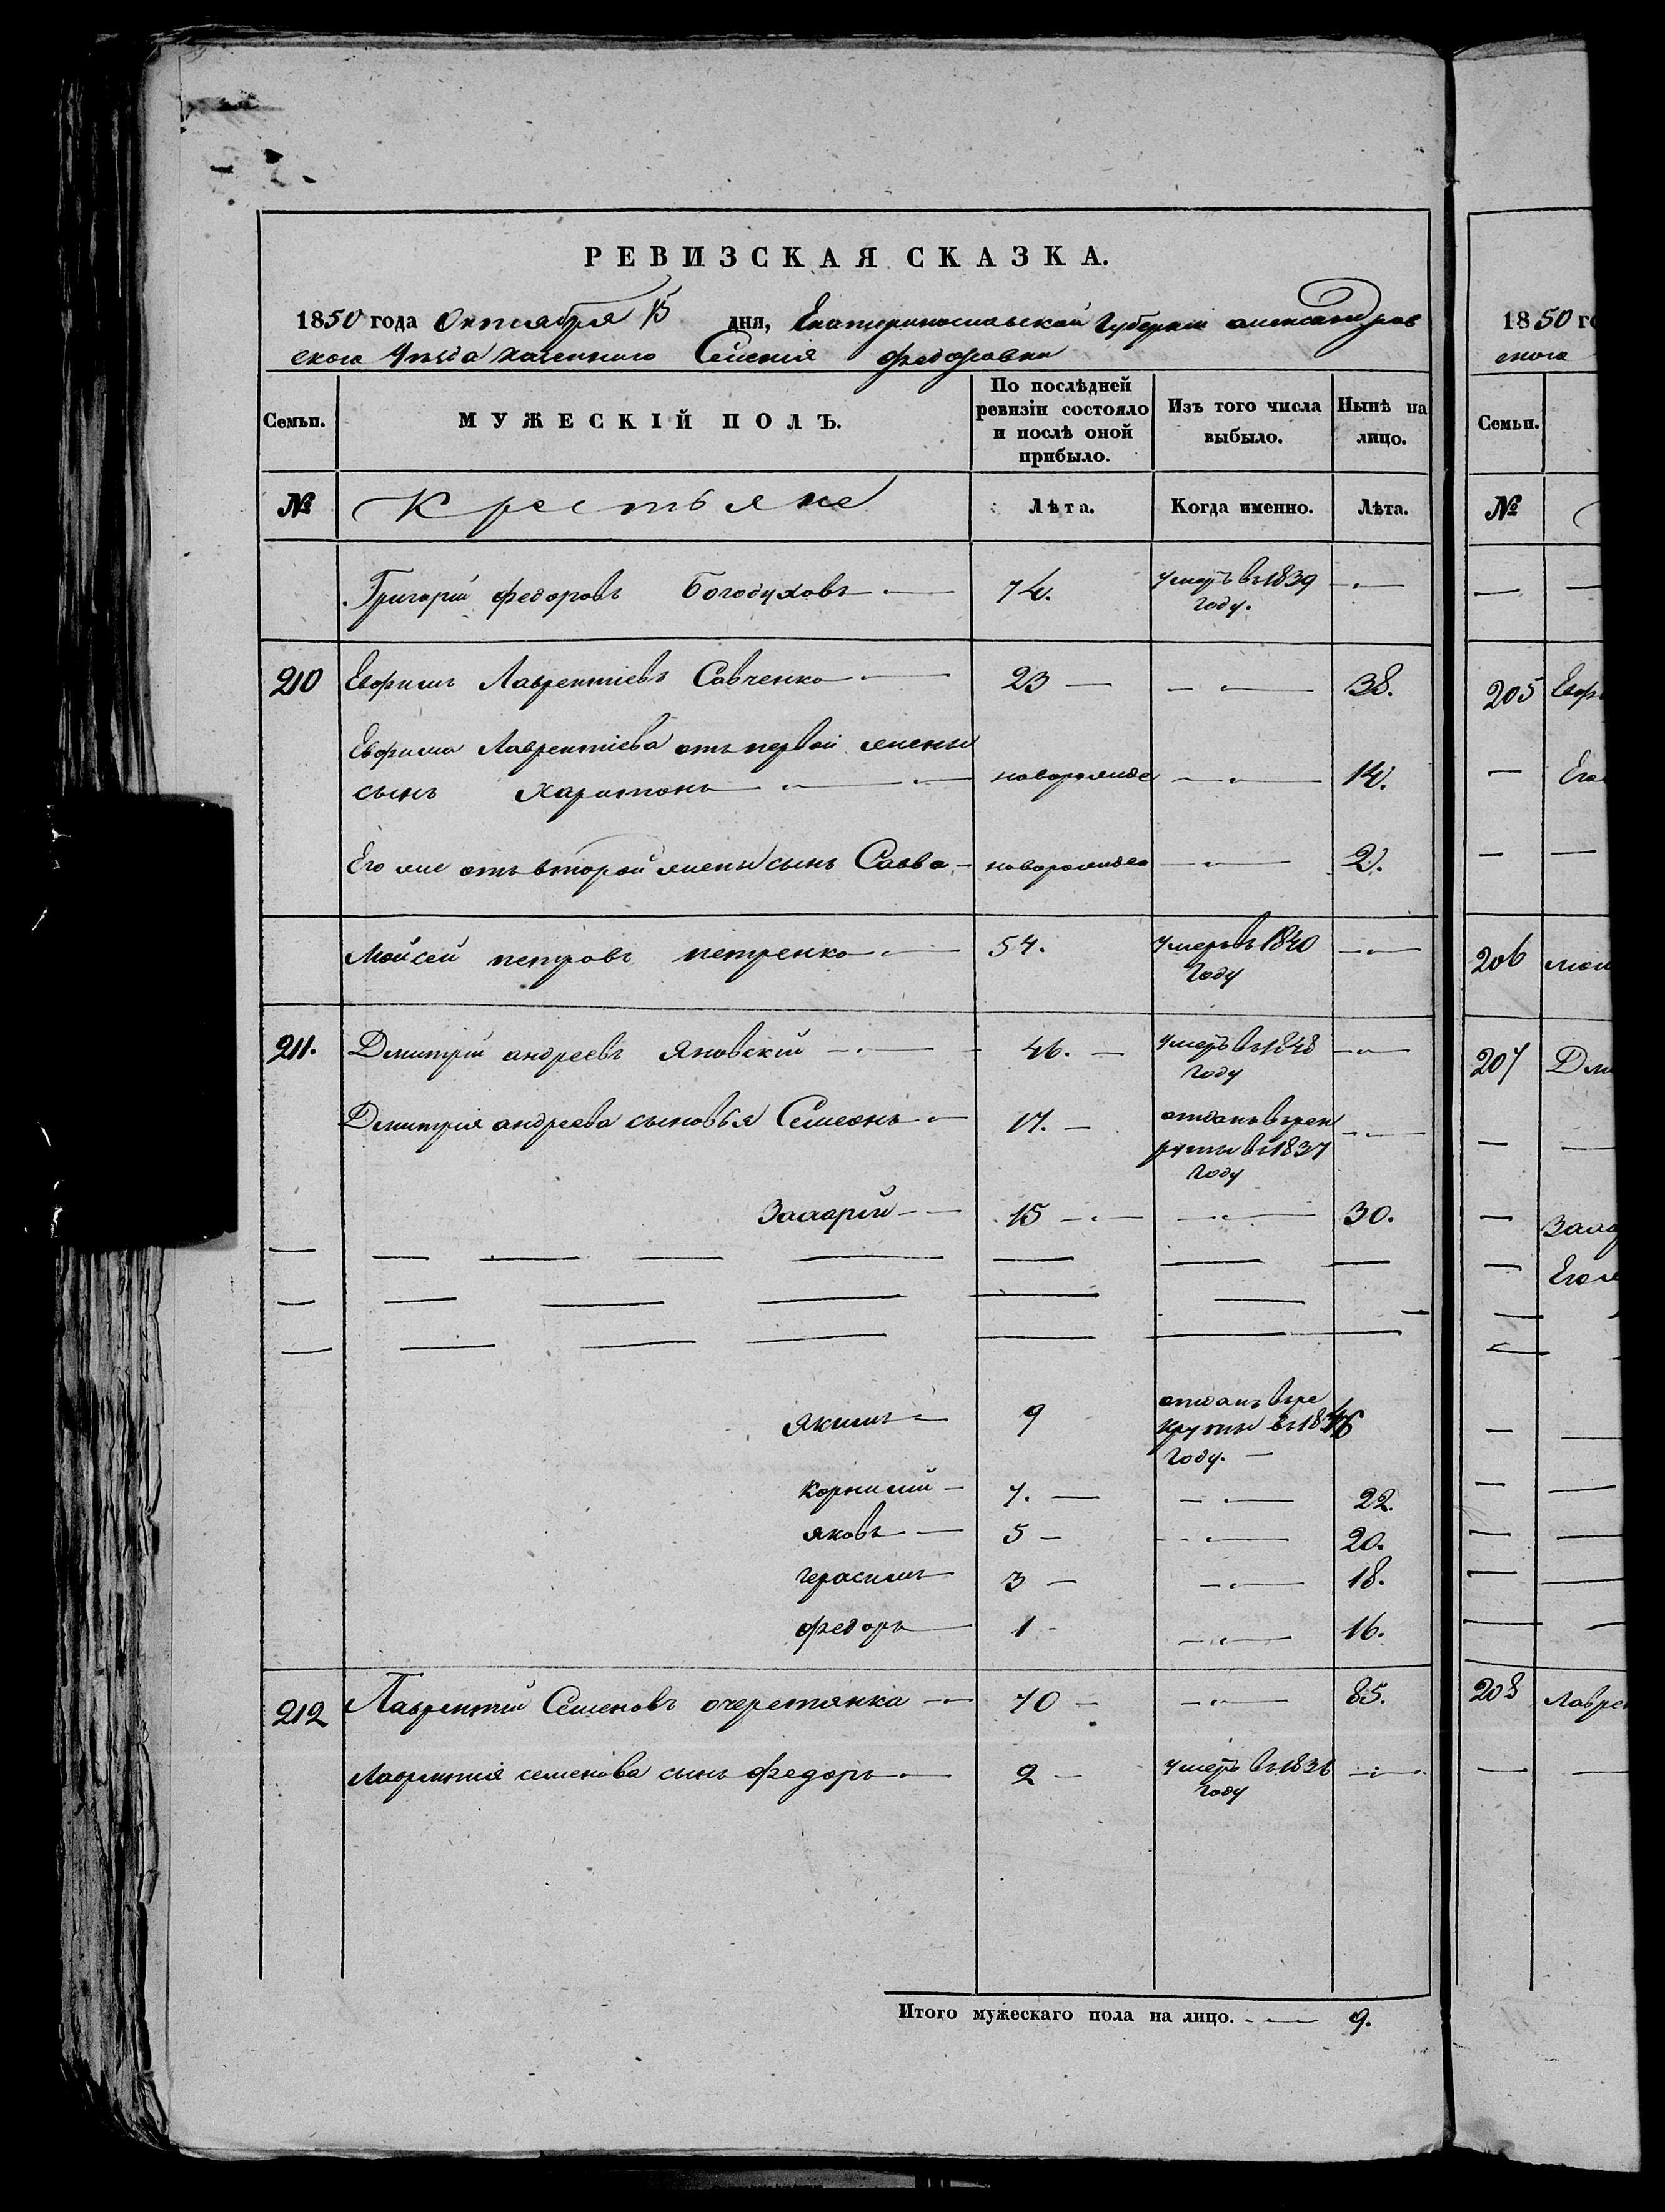 РЕВИЗСКАЯ СКАЗКА.
1850 года Октября 15 дня, Екатеринославской Губернiи александров
скаго Уезда казеннаго Селенiя федоровки
Семьи.
МУЖЕСКIЙ ПОЛЪ.
По послѣдней ревизiи состояло и послѣ оной прибыло.
Изъ того числа выбыло.
Нынѣ на лицо.
№ Крестьяне Лѣта. Когда именно. Лѣта.
Григорiй федоровъ Богодуховъ 74. умеръ въ 1839
году.
210 Евфимъ Лаврентiевъ Савченко 23 38.
Евфима Лаврентiева отъ первой жены
сынъ Харитонъ новорожде 14.
Его же отъ второй жены сынъ Савва новорожден 2.
Мойсей петровъ петренко 54. умеръ въ 1840
году
211. Дмитрiй андреевъ Яновскiй 46. умеръ въ 1848
году
Дмитрiя андреева сыновья Семеонъ 17. отданъ врек
руты въ 1837
году
Захарiй 15 30.
Якимъ 9 отданъ вре
круты въ 1846
году.
Корнилiй 7. 22.
яковъ 5 20.
герасимъ 3 18.
федоръ 1 16.
212 Лаврентiй Семеновъ очеретянка 70 85.
Лаврентiя семенова сынъ Федоръ 2 умеръ въ 1836
году
Итого мужескаго пола на лицо. 9.
1850 го
скаго
Семьи.
№
205 Евфи
Его
206 мои
207 Дми
Заха
Его ж
208 Лавре